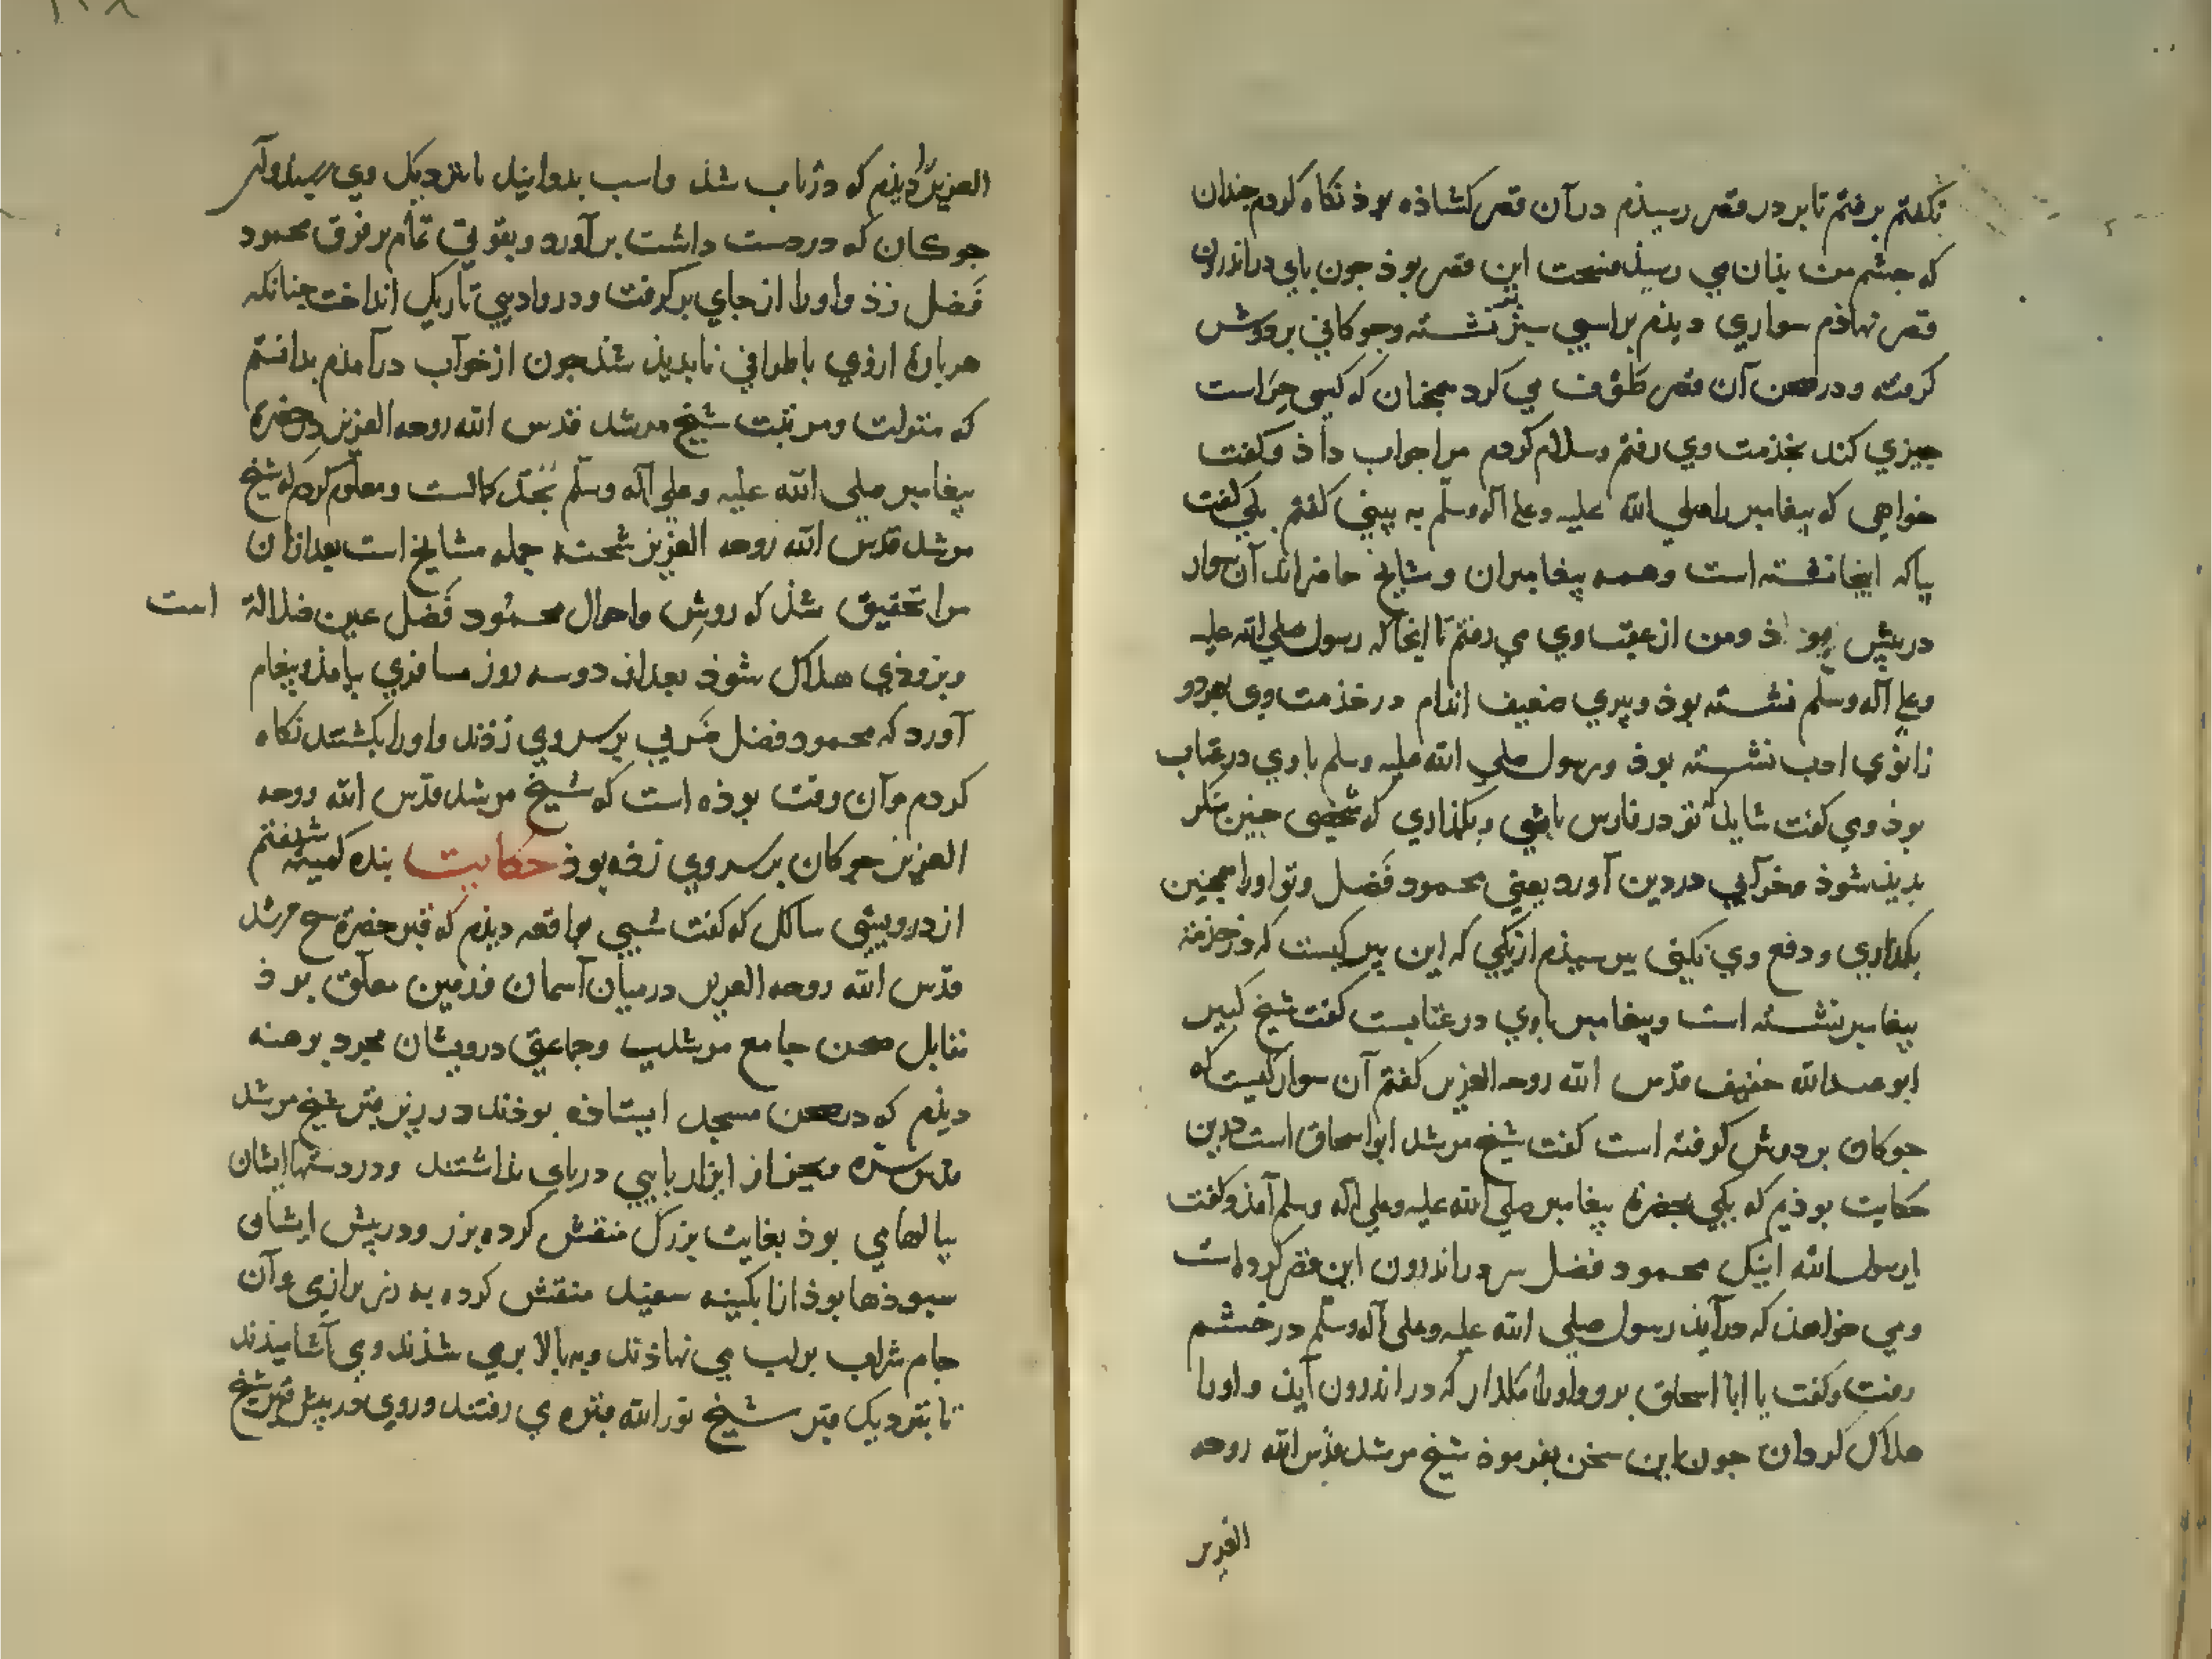 بگفتم برفتم تا بر در قصر رسیذم در آن قصر کشاذه بوذ نکاه کردم جندان
که جشم من بذان می رسیذ فسحت این قصر بوذ جون بای در اندرون
قصر نهاذم سواری دیذم بر اسبی سبز نشسته وجوکانی بر دوش
کرفته ودر صحن آن قصر طوف می کرد همجنان که کسی حراست
جیزی کند بخذمت وی رفتم وسلام کردم مرا جواب داذ وکفت
خواهی که بیغامبر را صلی الله علیه وعلی آله وسلم به بینی کفتم بلی کفت
بیا که اینجا نشسته است وهمه بیغامبران ومشایخ حاضراند آن سوار
در بیش بوذ ومن از عقب وی می رفتم تا آنجا که رسول صلی الله علیه
وعلی آله وسلم نشسته بوذ وبیری ضعیف اندام در خذمت وی بهر دو
زانوی ادب نشسته بوذ ورسول صلی الله علیه وسلم با وی در عتاب
بوذ ومی کفت شاید که تو در فارس باشی وبکذاری که شخصی جنین منکر
بدید شوذ وخرابی در دین آورد یعنی محمود فضل وتو اورا همجنین
بکذاری ودفع وی نکنی برسیذم از یکی که این بیر کیست که در خذمت
بیغامبر نشسته است وبیغامبر با وی در عتابست کفت شیخ کبیر
ابو عبدالله خفیف قدس الله روحه العزیز کفتم آن سوار کیست که
جوکان بر دوش کرفته است کفت شیخ مرشد ابو اسحاق است درین
حکایت بوذیم که یکی بحضرة بیغامبر صلی الله علیه وعلی آله وسلم آمذ وکفت
یا رسول الله اینک محمود فضل سر در اندرون این قصر کرده است
ومی خواهذ که درآیذ رسول صلی الله علیه وعلی آله وسلم در خشم
رفت وکفت یا ابا اسحاق برو واورا مکذار که در اندرون آیذ واورا
هلاک کردان جون این سخن بفرموذ شیخ مرشد قدس الله روحه
العزیز
العزیز را دیذم که در تاب شذ واسب بدوانید تا بنزدیک وی رسید وآن
جوکان که در دست داشت بر آورد وبقوتی تمام بر فرق محمود
فضل زذ واورا از جای برکرفت ودر وادیی تاریک انداخت جنانکه
هر بارۀ ازوی باطرافی نابدید شذ جون از خواب درآمذم بدانستم
که منزلت ومرتبت شیخ مرشد قدس الله روحه العزیز در حضرة
بیغامبر صلی الله علیه وعلی آله وسلم بجد کمالست ومعلوم کردم که شیخ
مرشد قدس الله روحه العزیز شحنه جمله مشایخ است بعد ازان
مرا تحقیق شذ که روش واحوال محمود فضل عین ضلالة است
وبزوذی هلاک شوذ بعد از دو سه روز مسافری بیامذ وبیغام
آورد که محمود فضل ضربی بر سر وی زذند واورا بکشتند نکاه
کردم وآن وقت بوذه است که شیخ مرشد قدس الله روحه
العزیز جوکان بر سر وی زذه بوذ حکایت بنده کمینه شنفتم
از درویشی سالک که کفت شبی بواقعه دیذم که قبر حضرة شیخ مرشد
قدس الله روحه العزیز در میان آسمان وزمین معلق بوذ
مقابل صحن جامع مرشدی وجماعتی درویشان مجرد برهنه
دیذم که در صحن مسجد ایستاذه بوذند در زیر قبر شیخ مرشد
قدس سره وبجز از ایزار بایی در بای نداشتند ودر دستها ایشان
بیالهایی بوذ بغایت بزرک منقش کرده بزر ودر بیش ایشان
سبوذها بوذ از آبکینه سفید منقش کرده به زر برازی وآن
جام شراب بر لب می نهاذند وبه بالا بر می شذند ومی آشامیذند
تا بنزدیک قبر شیخ نور الله قبره می رفتند وروی در بیش قبر شیخ